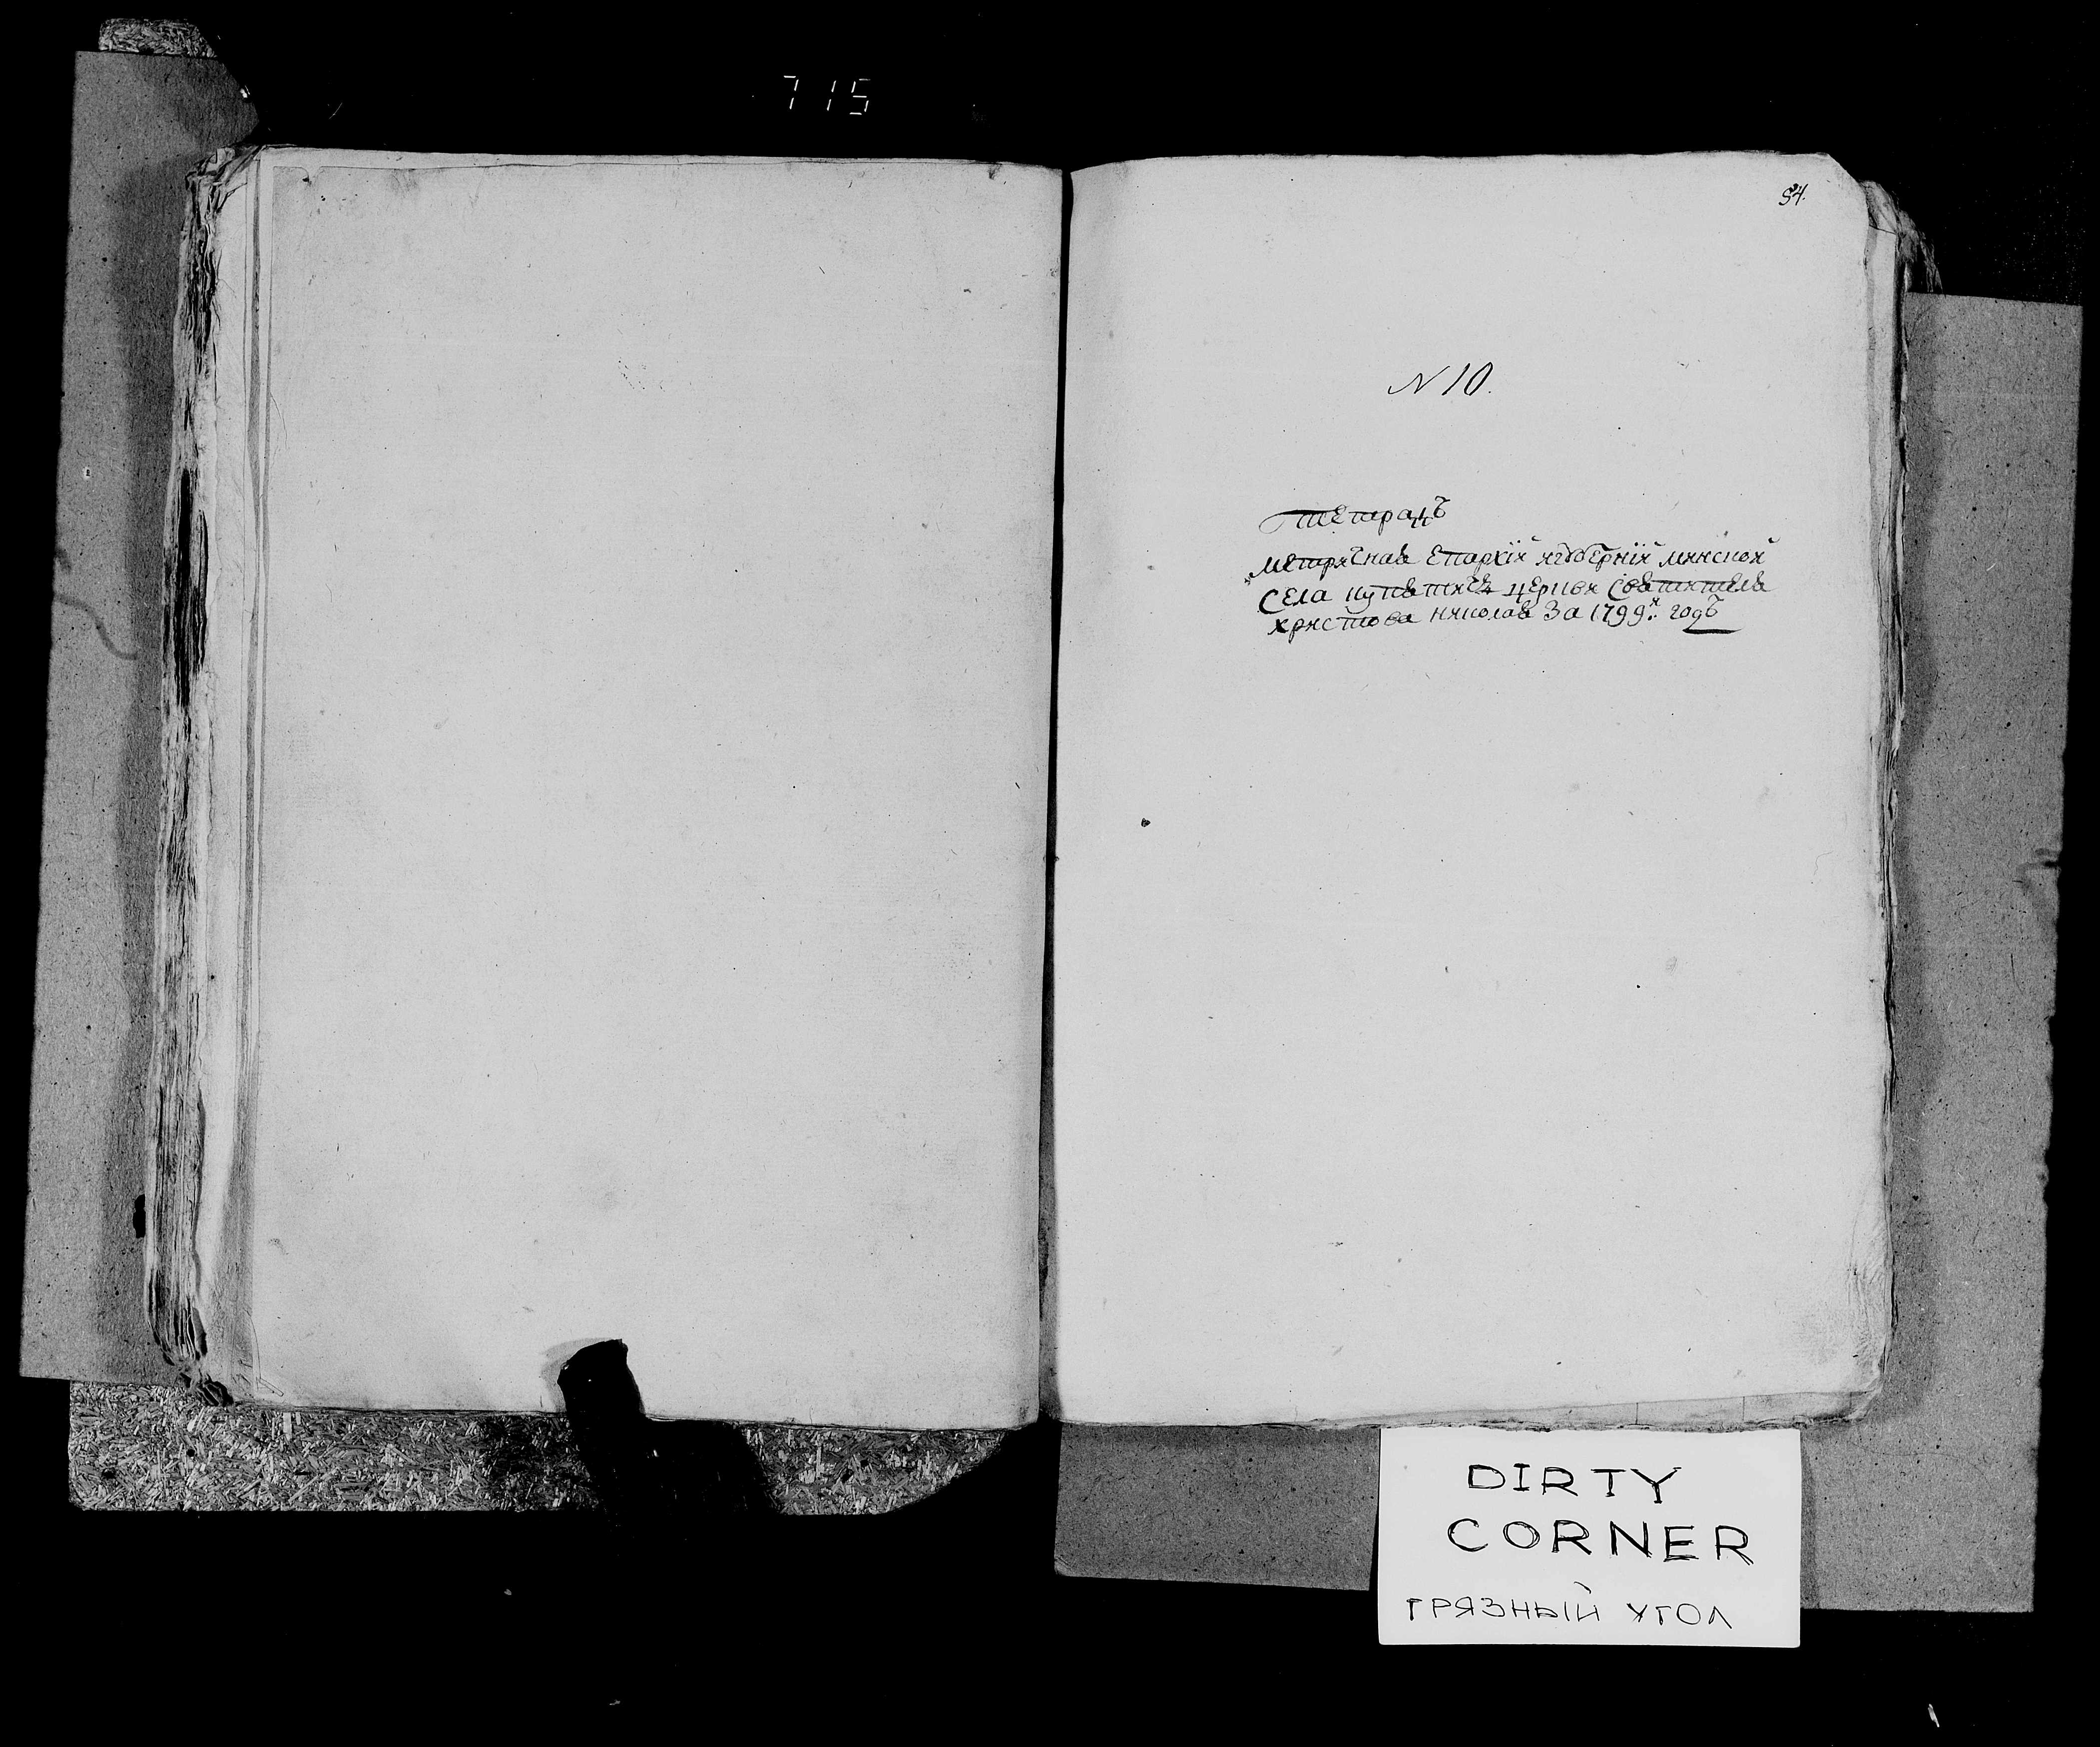 715
54.
N 10.
Тетрадь
метрičная епархiи и губернiи минской
Села купятичъ церкви Святителя
христова николая За 1799й годъ
DIRTY
CORNER
ГРЯЗНЫЙ УГОЛ